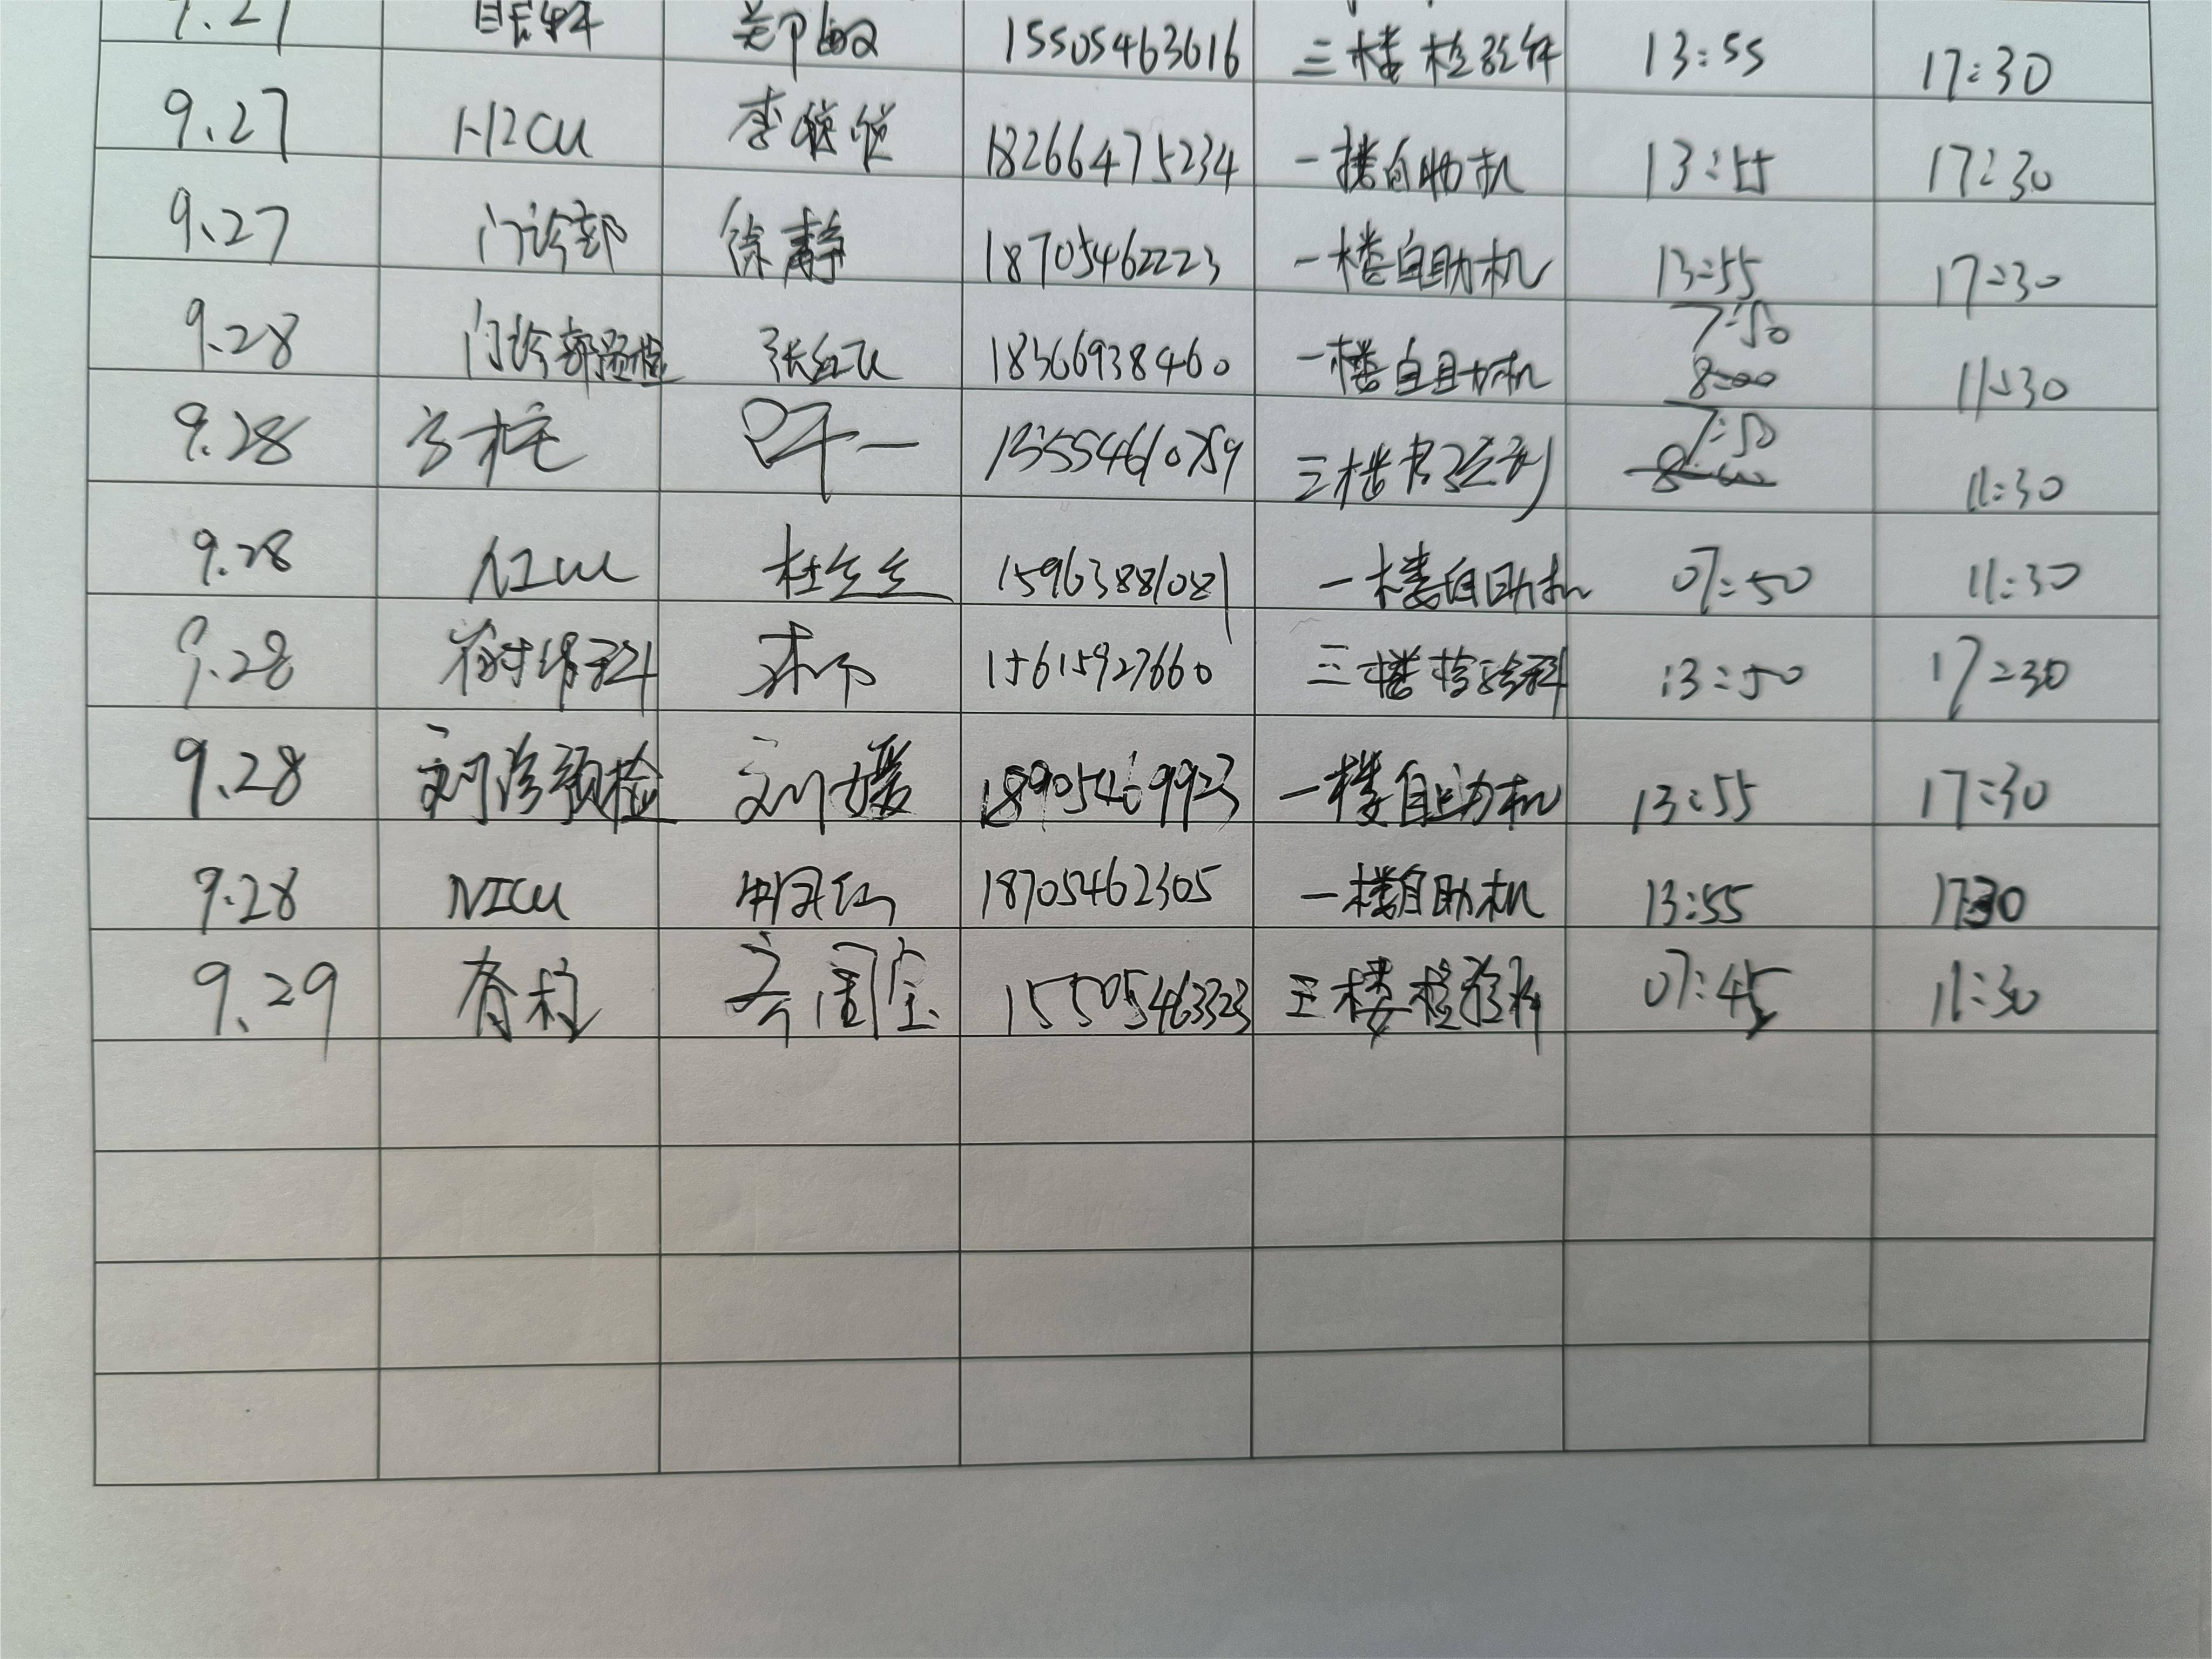 9.27 眼科 郑敏 15505463616 三楼检验科 13:55 17:30
9.27 NICU 李 18266475234 一楼自助机 13:55 17:30
9.27 门诊部 徐静 18705462223 一楼自助机 13:55 17:30
7:50
9.28 门诊部预检 张红飞 18366938460 一楼自助机 8:00 11:30
7:50
9.28 13554610759 三楼 8:00 11:30
9.28 NICU 杜 15963881081 一楼自助机 07:50 11:30
9.28 15615927660 三楼检验科 13:50 17:30
9.28 门诊预检 刘媛 18905469923 一楼自助机 13:55 17:30
9.28 NICU 18705462305 一楼自助机 13:55 17:30
9.29 脊柱 15505463323 三楼检验科 07:45 11:30